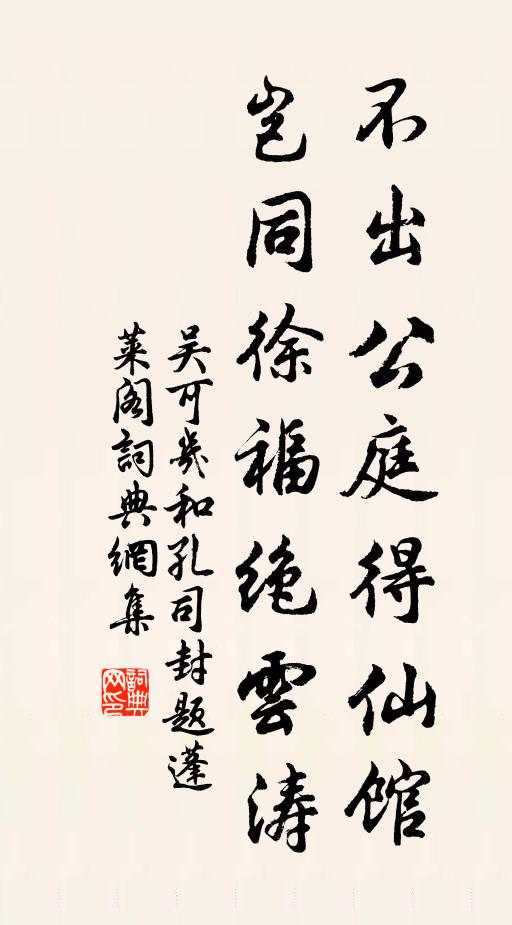 不出公庭得仙馆
岂同徐福绝雲涛
吴可幾和孔司封题蓬
莱阁詞典網集
詞典
网印